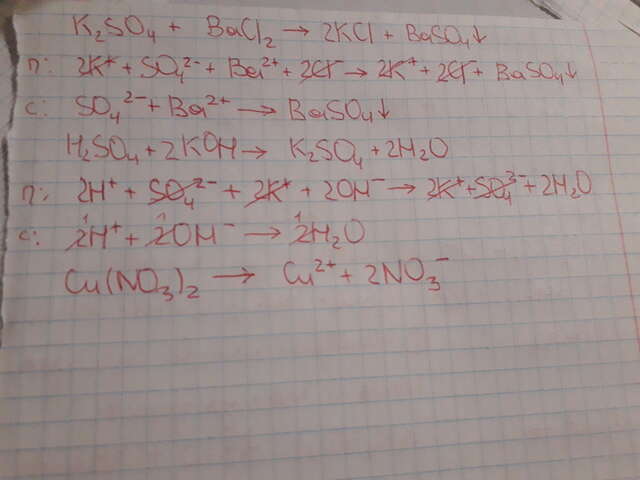 K₂SO₄ + BaCl₂ → 2KCl + BaSO₄↓
п: 2K⁺ + SO₄²⁻ + Ba²⁺ + 2Cl⁻ → 2K⁺ + 2Cl⁻ + BaSO₄↓
с: SO₄²⁻ + Ba²⁺ → BaSO₄↓
H₂SO₄ + 2KOH → K₂SO₄ + 2H₂O
п: 2H⁺ + SO₄²⁻ + 2K⁺ + 2OH⁻ → 2K⁺ + SO₄²⁻ + 2H₂O
с: 2H⁺ + 2OH⁻ → 2H₂O
Cu(NO₃)₂ → Cu²⁺ + 2NO₃⁻